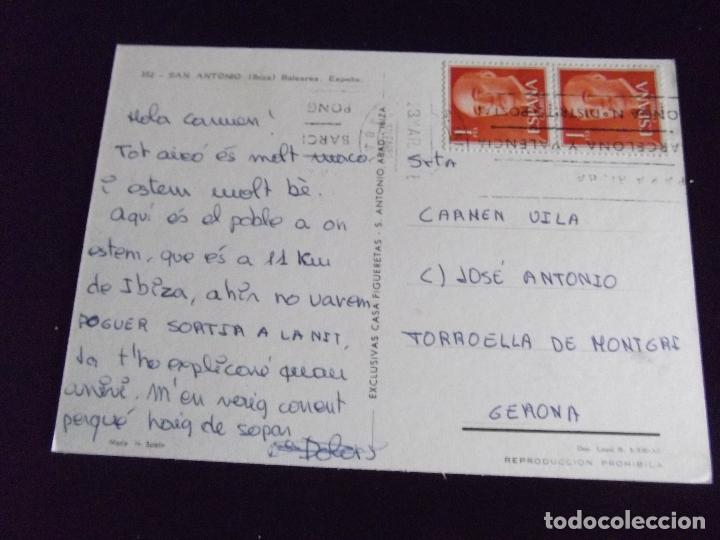 352 - SAN ANTONIO (Ibiza) Baleares. España.
Hola Carmen!
Tot això és molt maco
i estem molt bè.
Aquí és el poble a on
estem, que és a 11 Km
de Ibiza, ahir no varem
POGUER SORTIR A LA NIT,
Ja t'ho explicaré quan
arrivi. M'en vaig corrent
perqué haig de sopar
Dolors
Made in Spain
EXCLUSIVAS CASA FIGUERETAS - S. ANTONIO ABAD - IBIZA
ESPAÑA
ESPAÑA
BARCELONA Y VALENCIA
Srta
CARMEN VILA
C) JOSÉ ANTONIO
TORROELLA DE MONTGRI
GERONA
REPRODUCCION PROHIBILA
todocoleccion